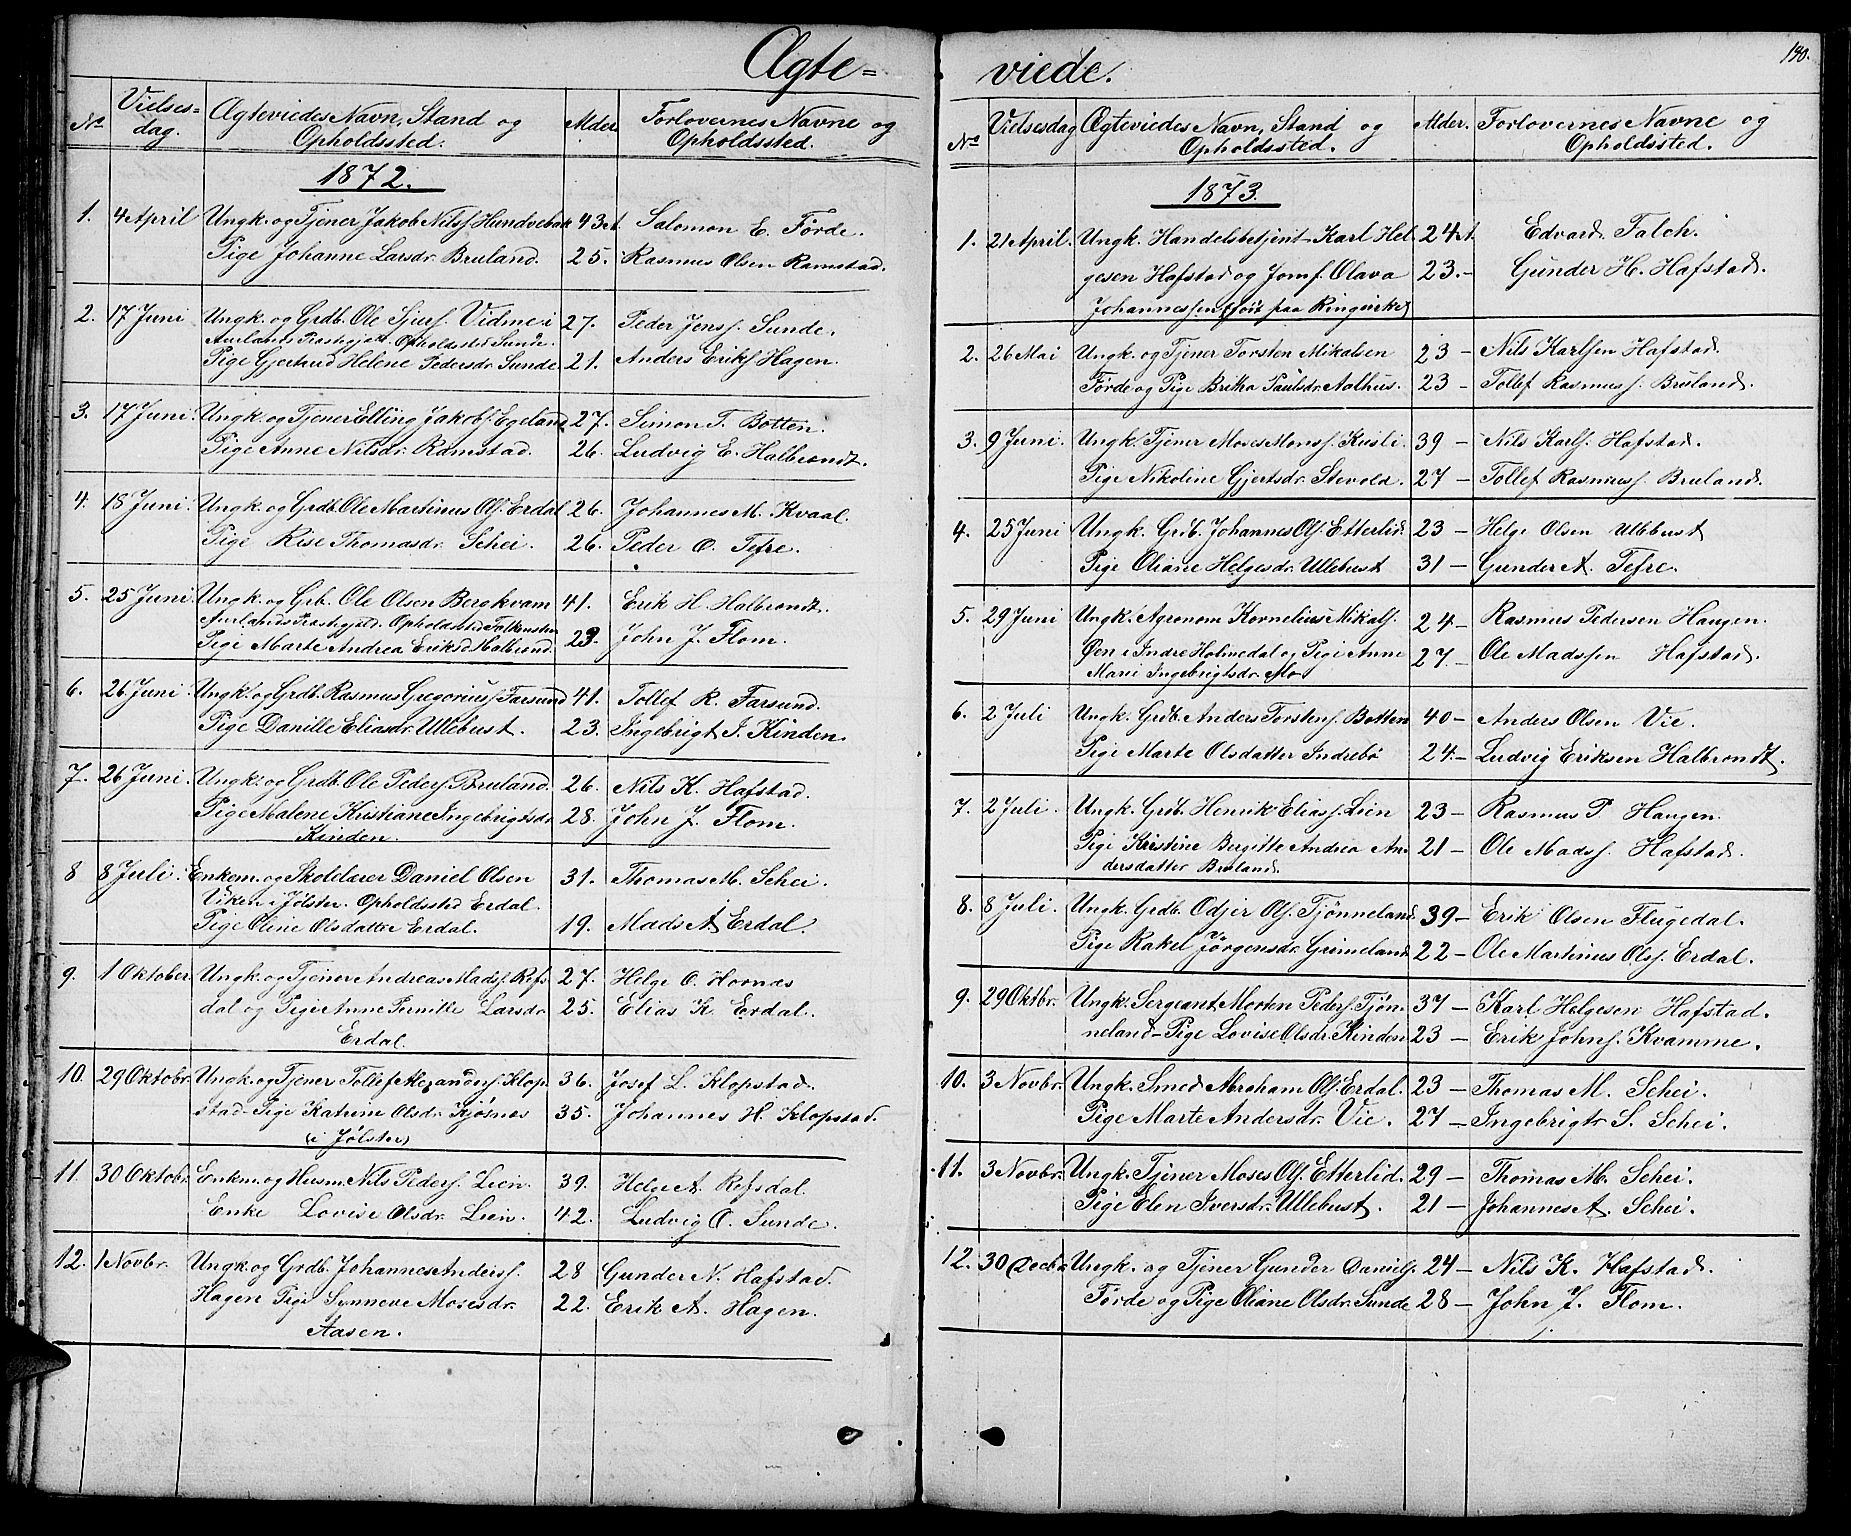 Ægte=
No Vielses=dag. Ægteviedes Navn, Stand og Opholdssted. Alder Forlovernes Navne og Opholdssted.
1872.
1. 4 April Ungk. og Tjener Jakob Nilss. Hundvebak 43 A. Salomon E. Förde.
Pige Johanne Larsdr. Bruland. 25. Rasmus Olsen Ramstad.
2. 17 Juni Ungk. og Grdb. Ole Sjurs. Vidme i 27. Peder Jenss. Sunde.
Aurlands Præstegjeld. Opholdssted Sunde.
Pige Gjertrud Helene Pedersdr. Sunde 21. Anders Eriks. Hagen.
3. 17 Juni. Ungk. og Tjener Elling Jakobs. Egeland 27. Simon T. Botten.
Pige Anne Nilsdr. Ramstad. 26. Ludvig E. Halbrendt.
4. 18 Juni. Ungk. og Grdb. Ole Martinus Ols. Erdal 26. Johannes M. Kvaal.
Pige Rise Thomasdr. Schei. 26. Peder O. Tefre.
5. 25 Juni. Ungk. og Grb. Ole Olsen Bergkvam 41. Erik H. Halbrendt.
Aurlands Præstegjeld. Opholdssted
Pige Marte Andrea Eriksd. Halbrend. 23. John J. Flom.
6. 26 Juni. Ungk. og Grdb. Rasmus Gregoriuss. Farsund 41. Tollef R. Farsund.
Pige Danille Eliasdr. Ullebust. 23. Ingebrigt J. Kinden.
7. 26 Juni. Ungk. og Grdb. Ole Peders. Bruland. 26. Nils K. Hafstad.
Pige Malene Kristiane Ingebrigtsdr. 28. John J. Flom.
Kinden.
8 8 Juli. Enkem. og Skolelærer Daniel Olsen 31. Thomas M. Schei.
Viken i Jølster. Opholdssted Erdal.
Pige Oline Olsdatter Erdal. 19. Mads A Erdal.
9. 1 Oktober Ungk. og Tjener Andreas Madss. Refs 27. Helge O. Hornæs
dal og Pige Anne Pernille Larsdr 25. Elias K. Erdal.
Erdal.
10. 29 Oktobr. Ungk. og Tjener Tollef Alexanders. Klop 36. Josef L. Klopstad.
stad - Pige Katrine Olsdr. Kjøsnes 35. Johannes H. Klopstad.
(i Jølster)
11. 30 Oktobr. Enkm. og Husm. Nils Peders. Lien 39. Helge A. Refsdal
Enke Lovise Olsdr. Lien. 42. Ludvig O. Sunde.
12. 1 Novbr. Ungk. og Grdb. Johannes Anderss. 28 Gunder N. Hafstad.
Hagen Pige Synneve Mosesdr. 22. Erik A. Hagen.
Aasen.
190.
viede.
No Vielsesdag Ægteviedes Navn, Stand og Opholdssted. Alder. Forlovernes Navne og Opholdssted.
1873.
1. 21 April. Ungk. Handelsbetjent Karl Hel 24 A. Edvard Falch.
gesen Hafstad og Jomf. Olava 23.- Gunder H. Hafstad.
Johannessen (født paa Ringerike)
2. 26 Mai Ungk. og Tjener Torsten Mikalsen 23 - Nils Karlsen Hafstad.
Førde og Pige Brika Paulsdr. Aalhus. 23 - Tollef Rasmuss. Bruland.
3. 9 Juni. Ungk. Tjener Moses Monss. Kusli. 39 - Nils Karls. Hafstad.
Pige Nikoline Gjertsdr. Stevold. 27 - Tollef Rasmuss. Bruland.
4. 25 Juni Ungk. Grb. Johannes Ols. Etterlid. 23 - Helge Olsen Ullebust
Pige Oliane Helgesdr. Ullebust 31 - Gunder A. Tefre.
5. 29 Juni Ungk. Agronom Kornelius Mikals. 24 - Rasmus Pedersen Haugen.
Øen i Indre Holmedal og Pige Anne 27 - Ole Madssen Hafstad.
Marie Ingebrigtsdr. Mo
6. 2 Juli Ungk. Grb. Anders Torstens. Botten 40 - Anders Olsen Vie.
Pige Marte Olsdatter Indrebö 24.- Ludvig Eriksen Halbrendt.
7. 2 Juli. Ungk. Grb. Henrik Eliass. Lien 23 - Rasmus P. Haugen.
Pige Kristine Birgitte Andrea An- 21 - Ole Madss. Hafstad.
dersdatter Bruland.
8. 8 Juli. Ungk. Grdb. Odjer Ols. Tjönneland. 39 - Erik Olsen Flugedal.
Pige Rakel Jörgensdr. Grimeland. 22 - Ole Martinus Ols. Erdal.
9. 29 Oktbr. Ungk. Sergeant Morten Peders. Tjön- 37 - Karl Helgesen Hafstad.
neland - Pige Lovise Olsdr. Kinden 23 - Erik Johns. Kvamme.
10. 3 Novbr. Ungk. Smed Abraham Ols. Erdal. 23 - Thomas M. Schei.
Pige Marte Andersdr. Vie. 27 - Ingebrigt S. Schei.
11. 3 Novbr. Ungk. Tjener Moses Ols. Etterlid. 29 - Thomas M. Schei.
Pige Elen Iversdr. Ullebust. 21 - Johannes A. Schei.
12. 30 Decbr Ungk. og Tjener Gunder Daniels. 24 - Nils K. Hafstad.
Førde og Pige Oliane Olsdr. Sunde 28 - John J. Flom.